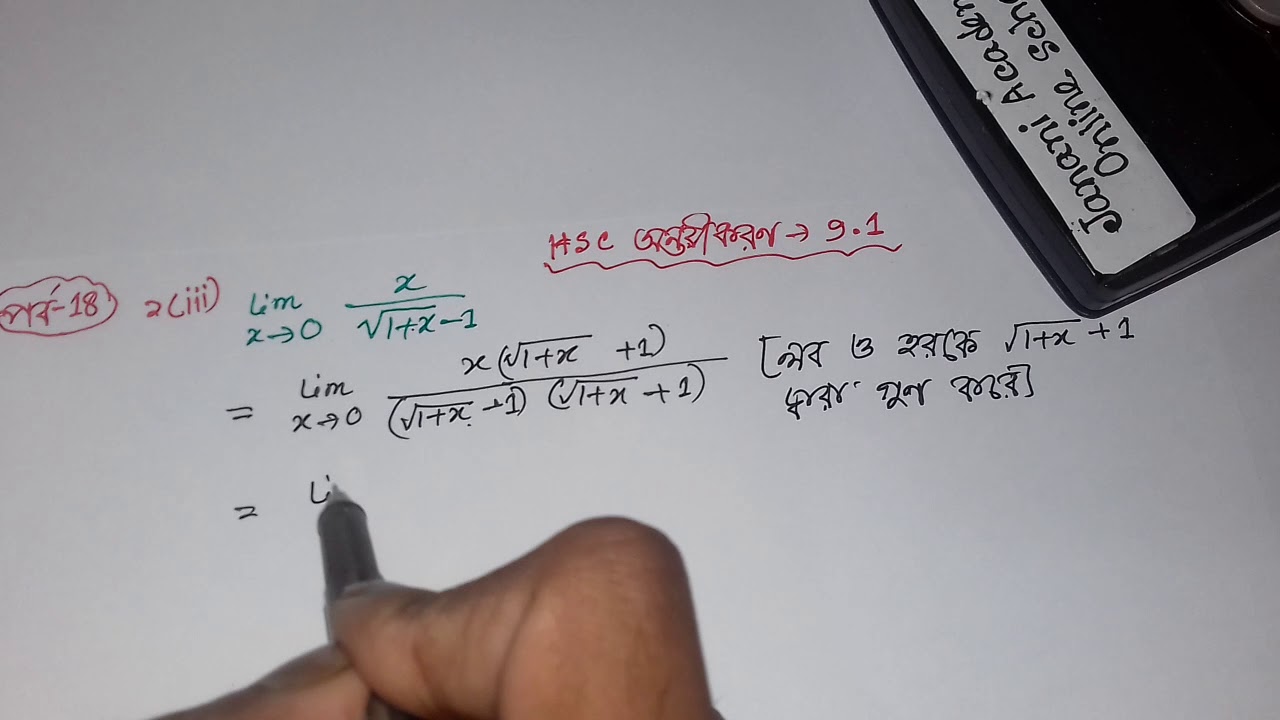 Janani Academ
Online Scho
HSC অন্তরীকরণ → 9.1
পর্ব-18 2(iii) lim x→0 x/(√1+x -1)
= lim x→0 x(√1+x +1)/(√1+x -1) (√1+x +1) [লব ও হরকে √1+x +1
দ্বারা গুণ করে]
= Li